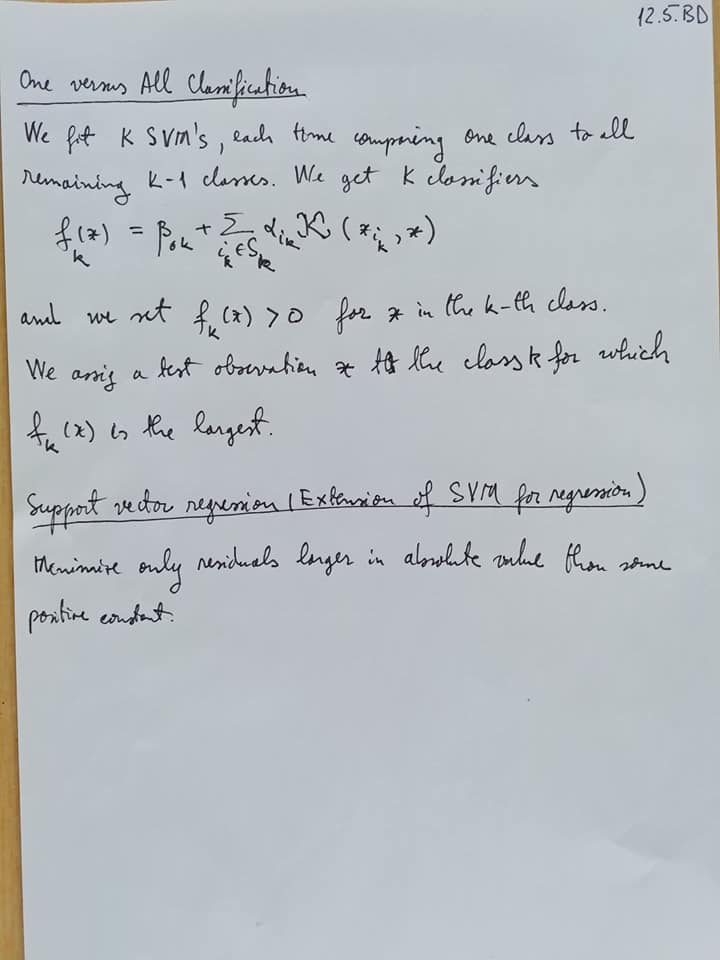 12.5.BD
One versus All Classification
We fit K SVM's, each time comparing one class to all
remaining K-1 classes. We get K classifiers
f_k(x) = β_{0k} + Σ_{i_k∈S_k} α_{i_k} K(x_{i_k}, x)
and we set f_k(x) > 0 for x in the k-th class.
We assig a test observation x to the class k for which
f_k(x) is the largest.
Support vector regression (Extension of SVM for regression)
Minimize only residuals larger in absolute value than some
positive constant.